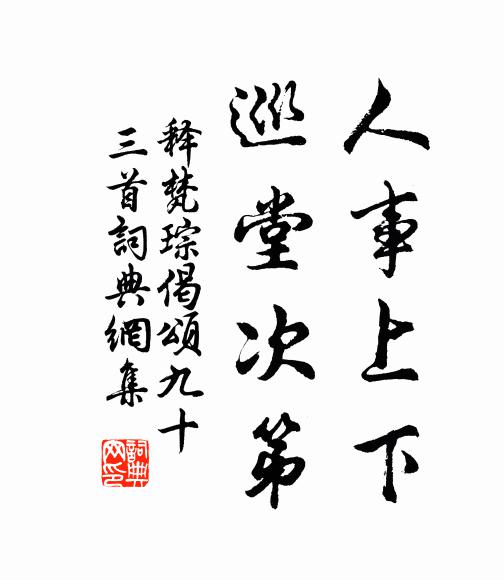 人事上下
巡堂次第
释梵琮偈頌九十
三首詞典網集
詞典网印